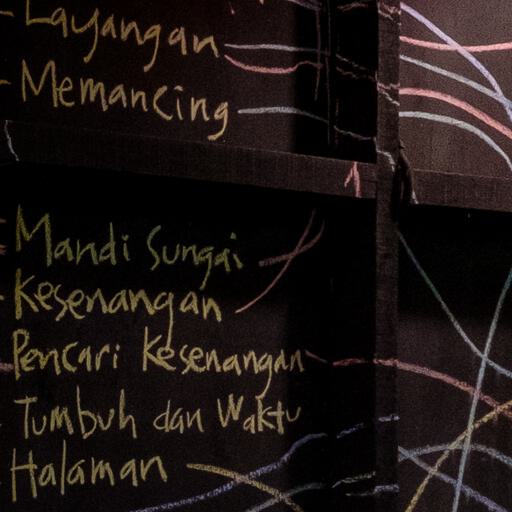 Layangan
Memancing
Mandi Sungai
Kesenangan
Pencari Kesenangan
Tumbuh dan Waktu
Halaman